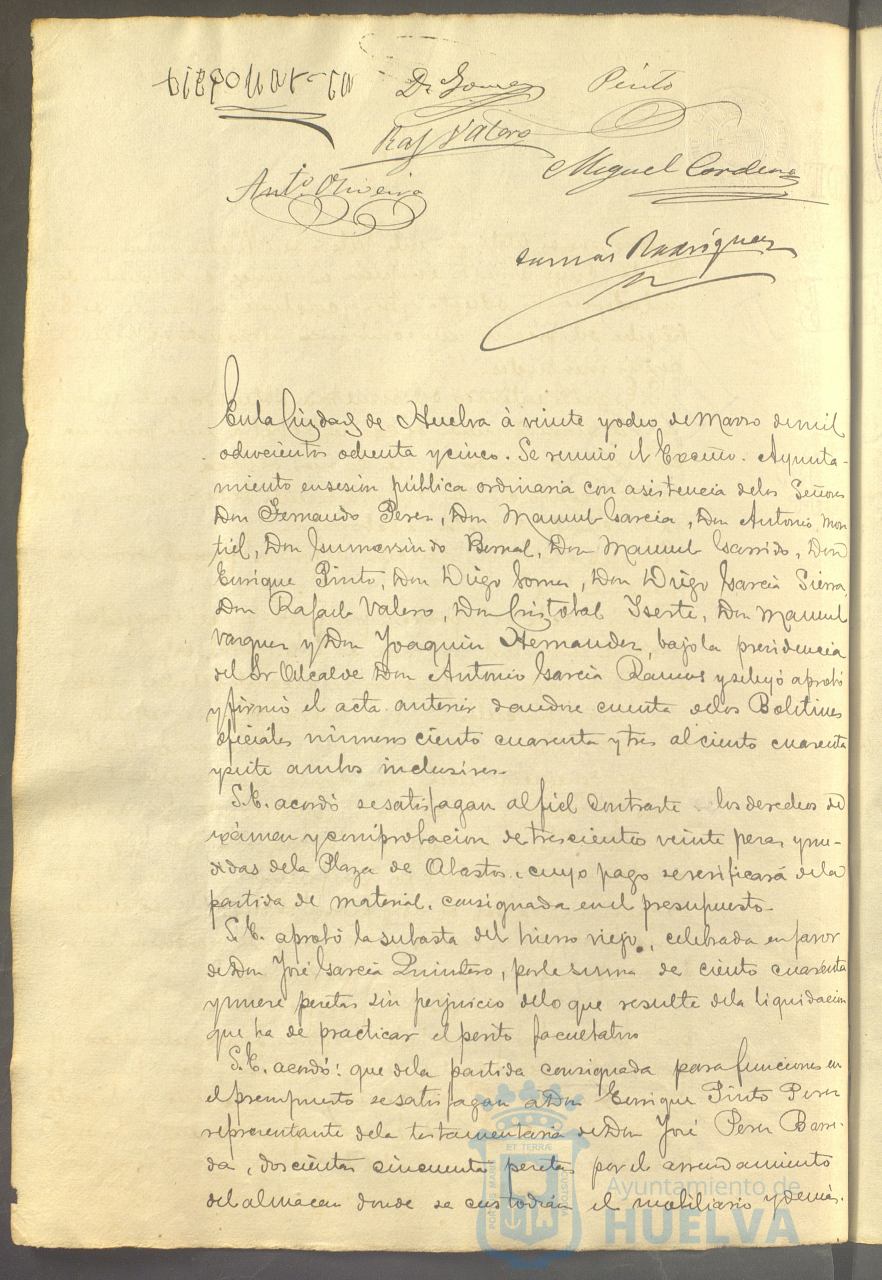 Dº Gomez Pinto
Raf Valero
Miguel Cordero
Antº Oliveira
Tomás Rodriguez
En la Ciudad de Huelva á veinte y ocho de Marzo de mil
ochocientos ochenta y cinco. Se reunió el Excmo. Ayunta-
miento en sesión pública ordinaria con asistencia de los Señores
Don Fernando Perez, Don Manuel Garcia, Don Antonio Mon
tiel, Don Gumersindo Bernal, Don Manuel Garrido, Don
Enrique Pinto, Don Diego Gomez, Don Diego Garcia Sierra,
Don Rafael Valero, Don Cristobal Iserte, Don Manuel
Vazquez y Don Joaquin Hernandez, bajo la presidencia
del Sr Alcalde Don Antonio Garcia Ramos y se leyó aprobó
y firmó el acta anterior dandose cuenta de los Boletines
oficiales números ciento cuarenta y tres al ciento cuarenta
y siete ambos inclusives.
S.E. acordó se satisfagan al fiel contraste los derechos de
exámen y comprobacion de trescientos veinte pesas y me-
didas de la Plaza de Abastos, cuyo pago se verificará de la
partida de material, consignada en el presupuesto.
S.E. aprobó la subasta del hierro viejo, celebrada en favor
de Don José Garcia Quintero, por la suma de ciento cuarenta
y nueve pesetas sin perjuicio de lo que resulte de la liquidacion
que ha de practicar el perito facultativo
S.E. acordó: que de la partida consignada para funciones en
el presupuesto se satisfagan a Don Enrique Pinto Perez
representante de la testamentaria de Don José Perez Barre-
da, doscientas cincuenta pesetas por el arrendamiento
del almacen donde se custodian el mobiliario y demás
ET TERRÆ
PORTUS MARIS
CUSTODIA
Ayuntamiento de
HUELVA